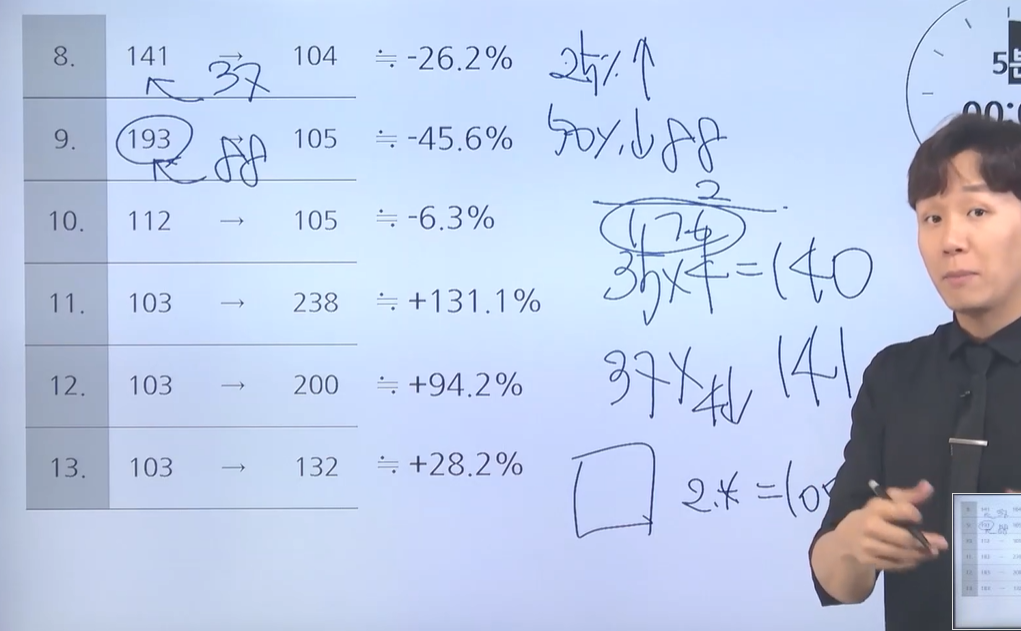 8. 141 → 104 ≒ -26.2% 25% ↑
37
9. 193 → 105 ≒ -45.6% 50%↓ 88
88
10. 112 → 105 ≒ -6.3%
2
176
11. 103 → 238 ≒ +131.1%
35×4=140
12. 103 → 200 ≒ +94.2%
37× 4↓ 141
13. 103 → 132 ≒ +28.2%
2.× =10
5분
00: